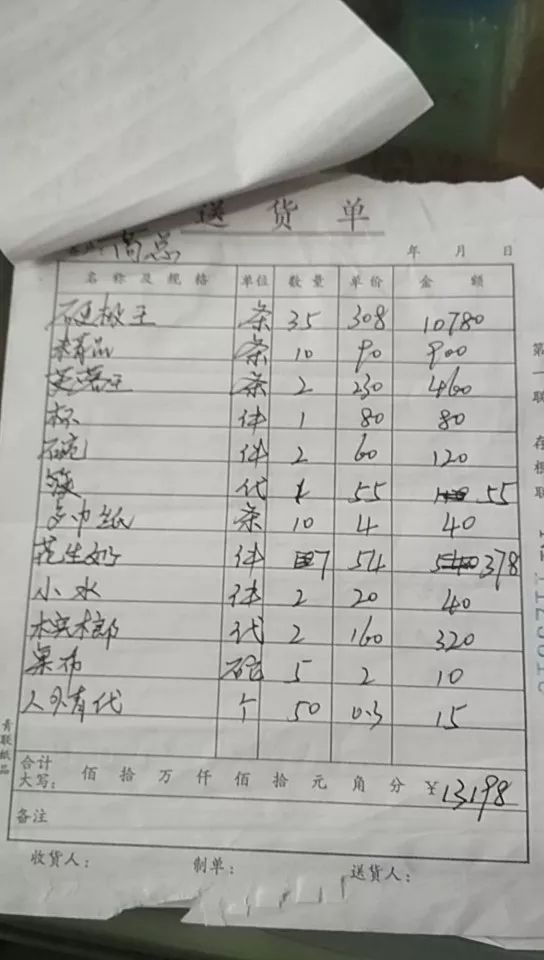 送 货 单
高总
年 月 日
名 称 及 规 格 单位 数 量 单 价 金 额
硬极王 条 35 308 10780
精品 条 10 90 900
芙蓉王 条 2 230 460
杯 件 1 80 80
碗 件 2 60 120
筷 代 1 55 55
巾纸 条 10 4 40
花生奶 件 7 54 378
小水 件 2 20 40
代 2 160 320
桌布 5 2 10
代 个 50 0.3 15
合计
大写： 佰 拾 万 仟 佰 拾 元 角 分 ￥13198
备注
收货人： 制单： 送货人：
青联纸品
第一联 存根联